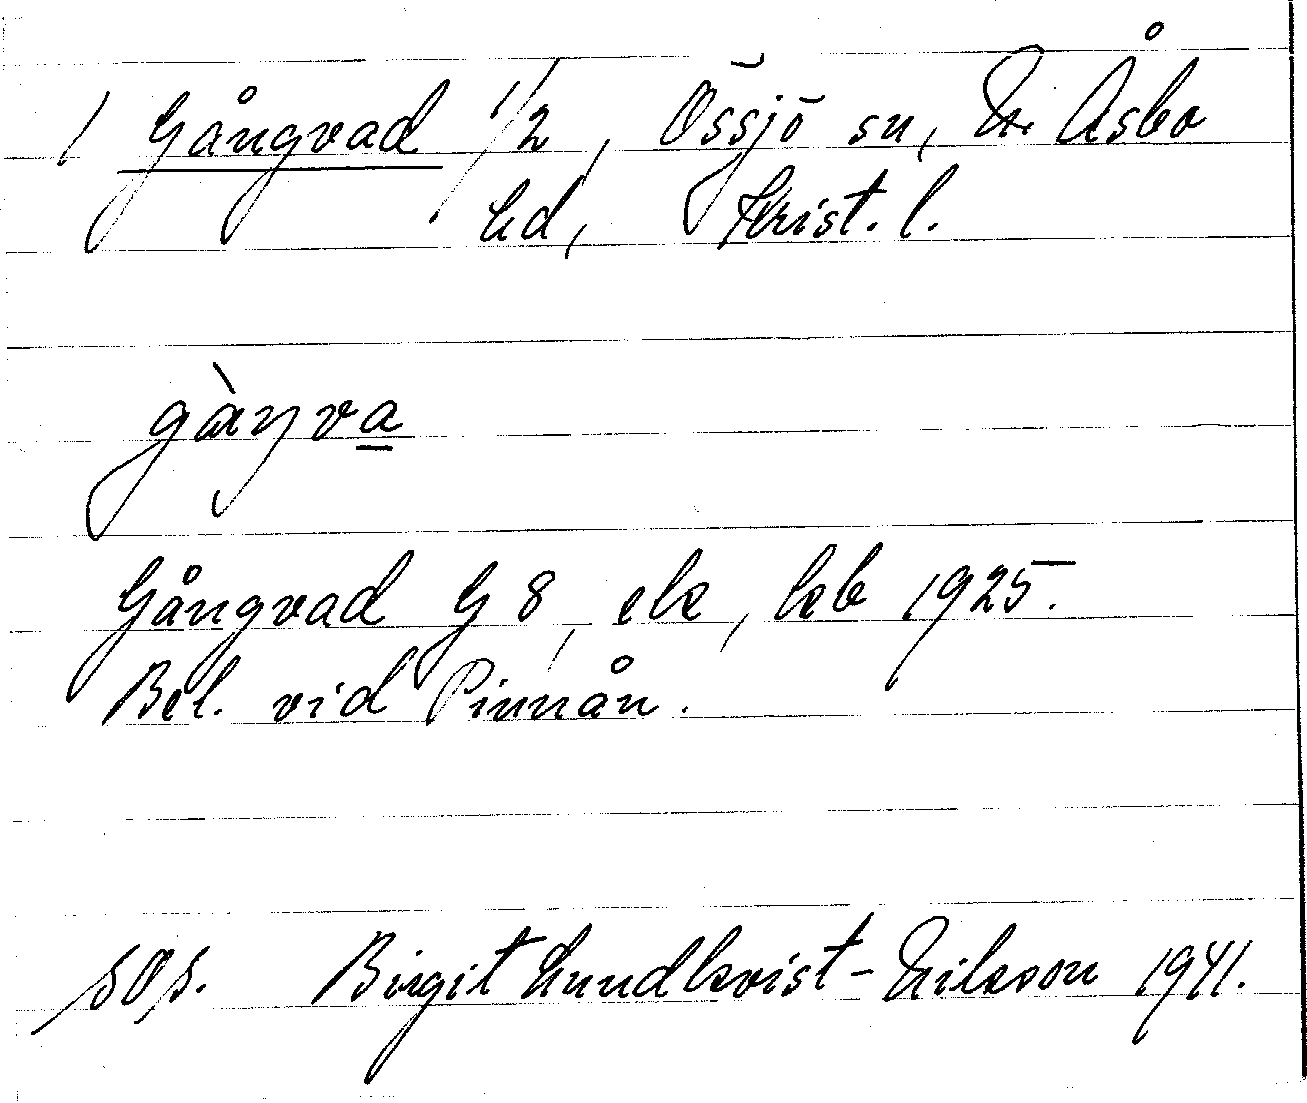 1 Gångvad 1/2, Össjö sn, N. Åsbo
hd, Krist. l.
gàŋva
Gångvad G 8, ek, kb 1925.
Bel. vid Pinnån.
Birgit Lundkvist-Nilsson 1941.